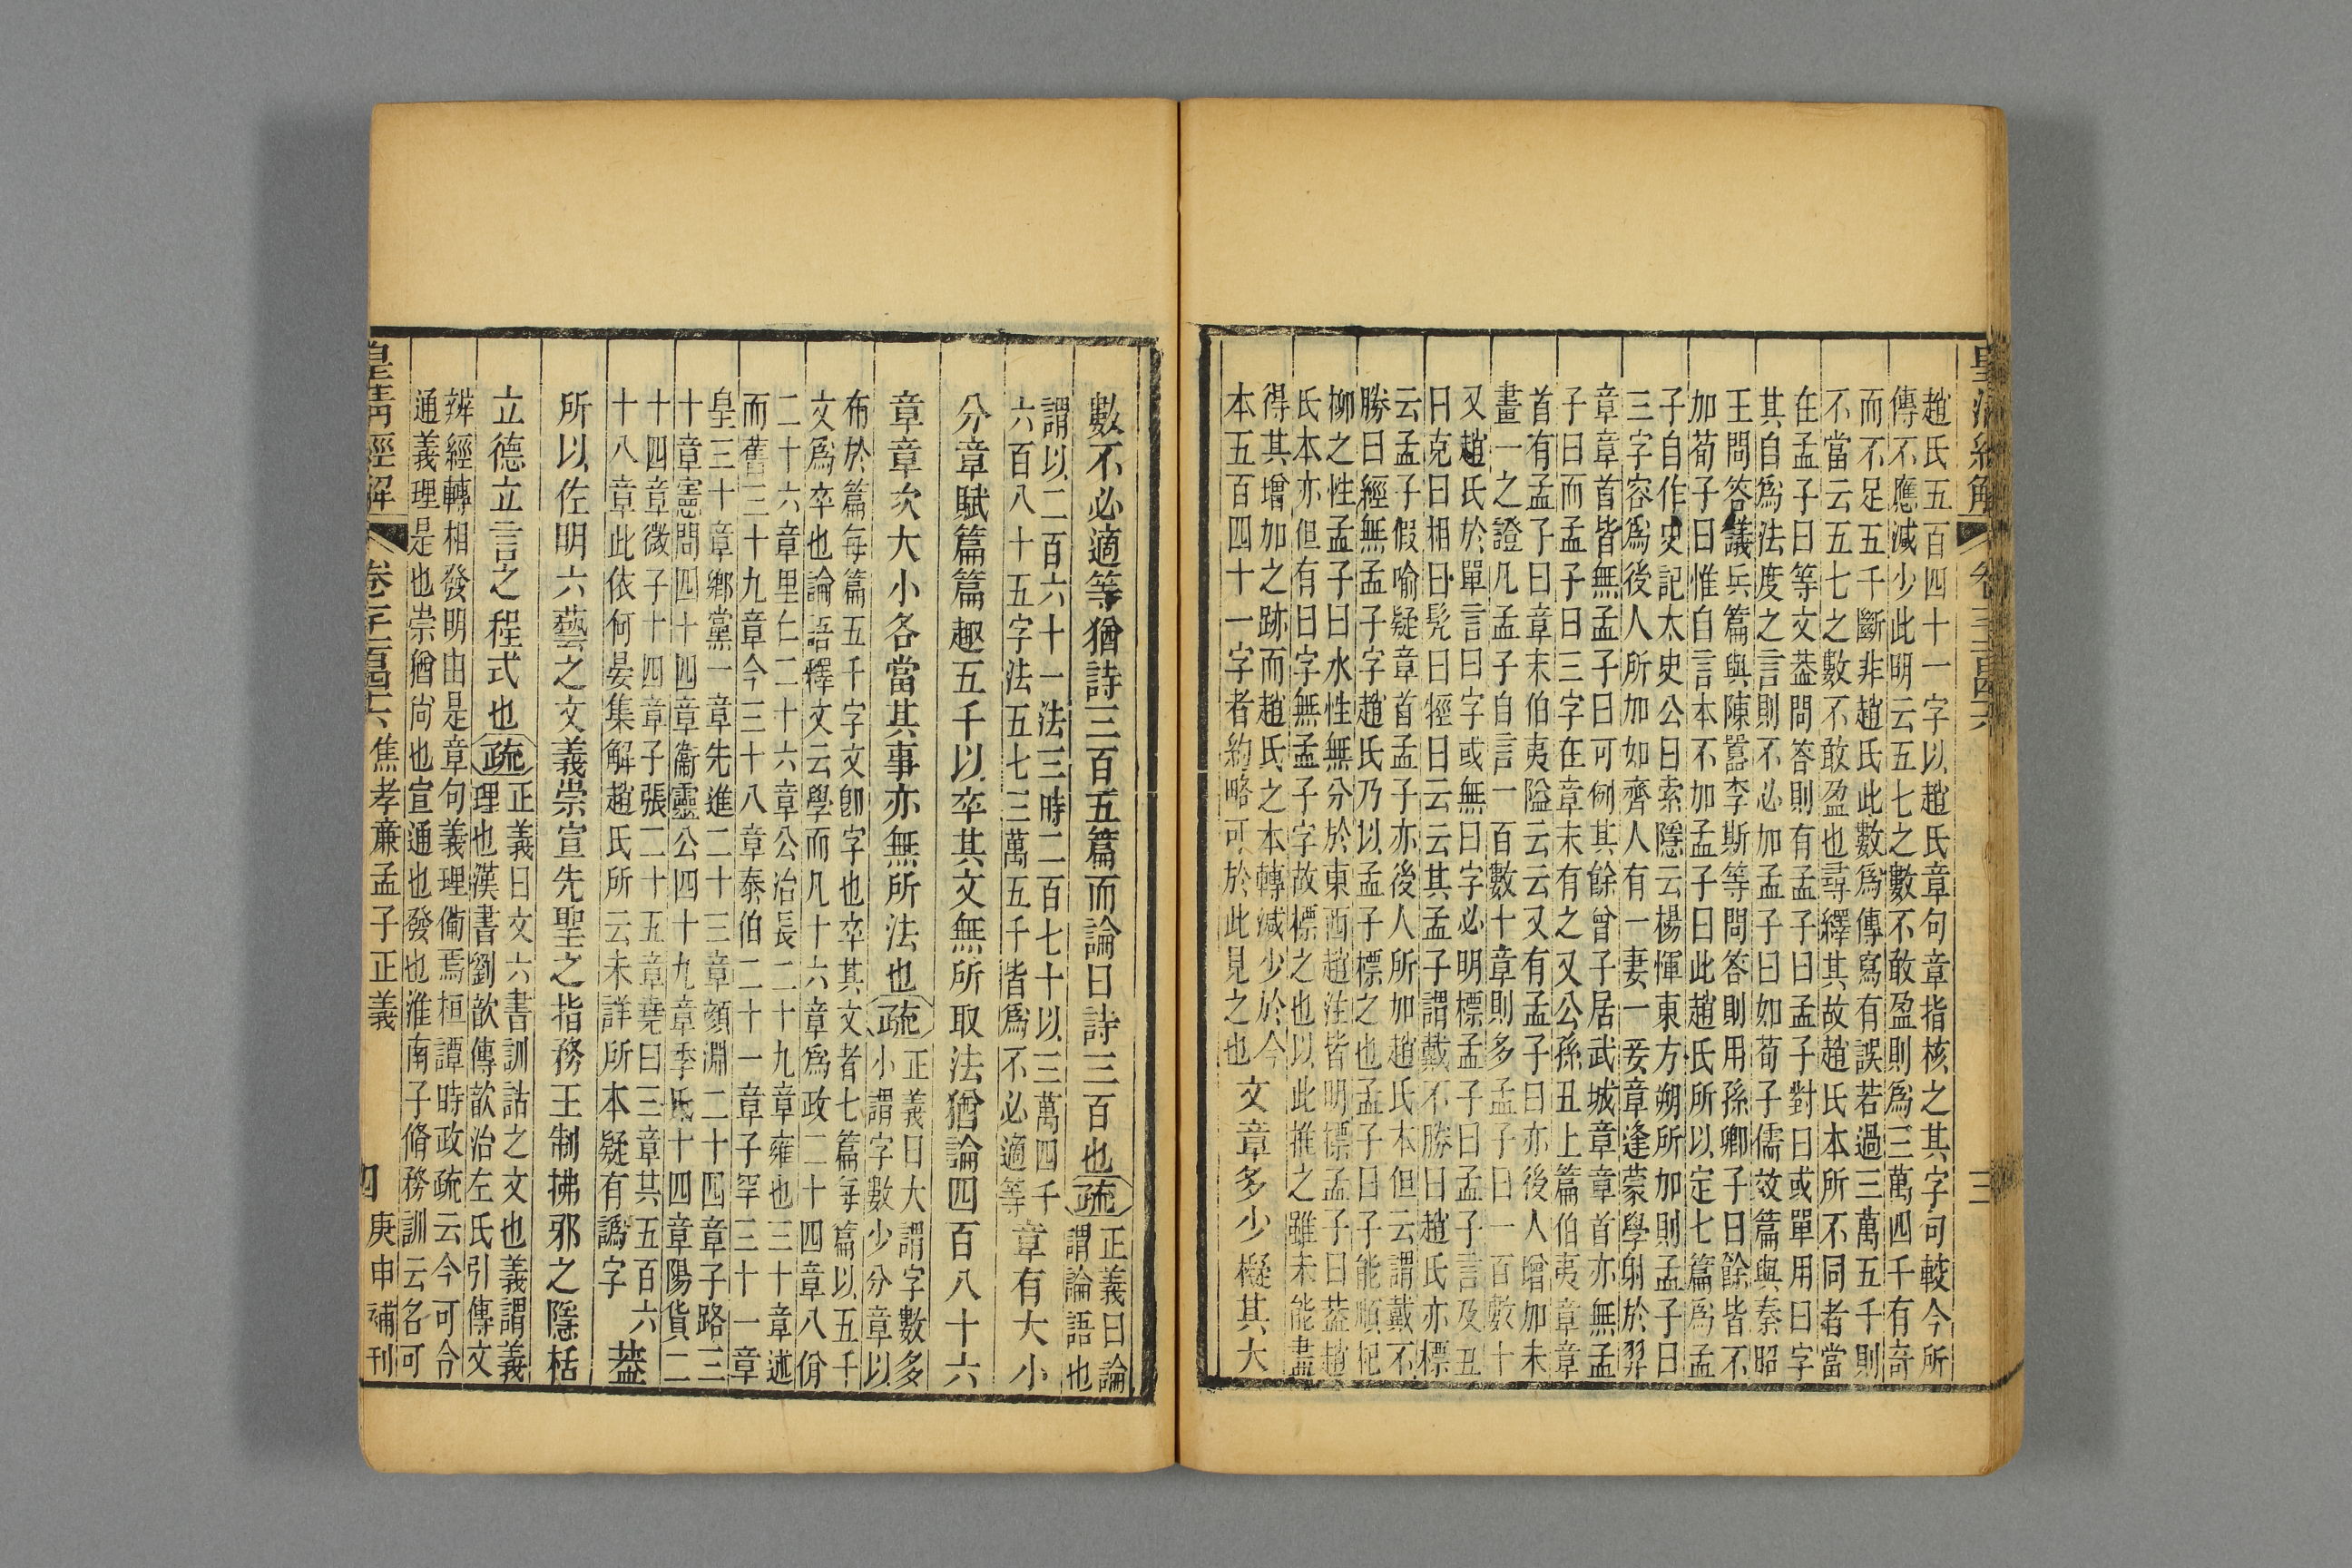 皇清經解
卷三百四六
三
趙氏五百四十一字以趙氏章句章指核之其字句較今所
傳不應減少此明云五七之數不敢盈則爲三萬四千有奇
而不足五千斷非趙氏此數爲傳寫有誤若過三萬五千則
不當云五七之數不敢盈也尋繹其故趙氏本所不同者當
在孟子曰等文葢問答則有孟子曰孟子對曰或單用曰字
其自爲法度之言則不必加孟子曰如荀子儒效篇與秦昭
王問答議兵篇與陳囂李斯等問答則用孫卿子曰餘皆不
加荀子曰惟自言本不加孟子曰此趙氏所以定七篇爲孟
子自作史記太史公曰索隱云楊惲東方朔所加則孟子曰
三字容爲後人所加如齊人有一妻一妾章逢蒙學射於羿
章章首皆無孟子曰可例其餘曾子居武城章章首亦無孟
子曰而孟子曰三字在章末有之又公孫丑上篇伯夷章章
首有孟子曰章末伯夷隘云云又有孟子曰亦後人增加未
畫一之證凡孟子自言一百數十章則多孟子曰一百數十
又趙氏於單言曰字或無曰字必明標孟子曰孟子言及丑
曰克曰相曰髡曰牼曰云云其孟子謂戴不勝曰趙氏亦標
云孟子假喻疑章首孟子亦後人所加趙氏本但云謂戴不
勝曰經無孟子字趙氏乃以孟子標之也孟子曰子能順杞
柳之性孟子曰水性無分於東西趙注皆明標孟子曰葢趙
氏本亦但有曰字無孟子字故標之也以此推之雖未能盡
得其增加之跡而趙氏之本轉減少於今
本五百四十一字者約略可於此見之也
文章多少擬其大
數不必適等猶詩三百五篇而論曰詩三百也
疏
正義曰論
謂論語也
謂以二百六十一法三時二百七十以三萬四千
六百八十五字法五七三萬五千皆爲不必適等
章有大小
分章賦篇篇趣五千以卒其文無所取法猶論四百八十六
章章次大小各當其事亦無所法也
疏
正義曰大謂字數多
小謂字數少分章以
布於篇每篇五千字文卽字也卒其文者七篇每篇以五千
文爲卒也論語釋文云學而凡十六章爲政二十四章八佾
二十六章里仁二十六章公冶長二十九章雍也三十章述
而舊三十九章今三十八章泰伯二十一章子罕三十一章
皇三十章鄉黨一章先進二十三章顏淵二十四章子路三
十章憲問四十四章衞靈公四十九章季氏十四章陽貨二
十四章微子十四章子張二十五章堯曰三章共五百六
十八章此依何晏集解趙氏所云未詳所本疑有譌字
葢
所以佐明六藝之文義崇宣先聖之指務王制拂邪之隱栝
立德立言之程式也
疏
正義曰文六書訓詁之文也義謂義
理也漢書劉歆傳歆治左氏引傳文
辨經轉相發明由是章句義理備焉桓譚時政疏云今可令
通義理是也崇猶尚也宣通也發也淮南子脩務訓云名可
皇清經解
卷三百四六
焦孝廉孟子正義
四
庚申補刊